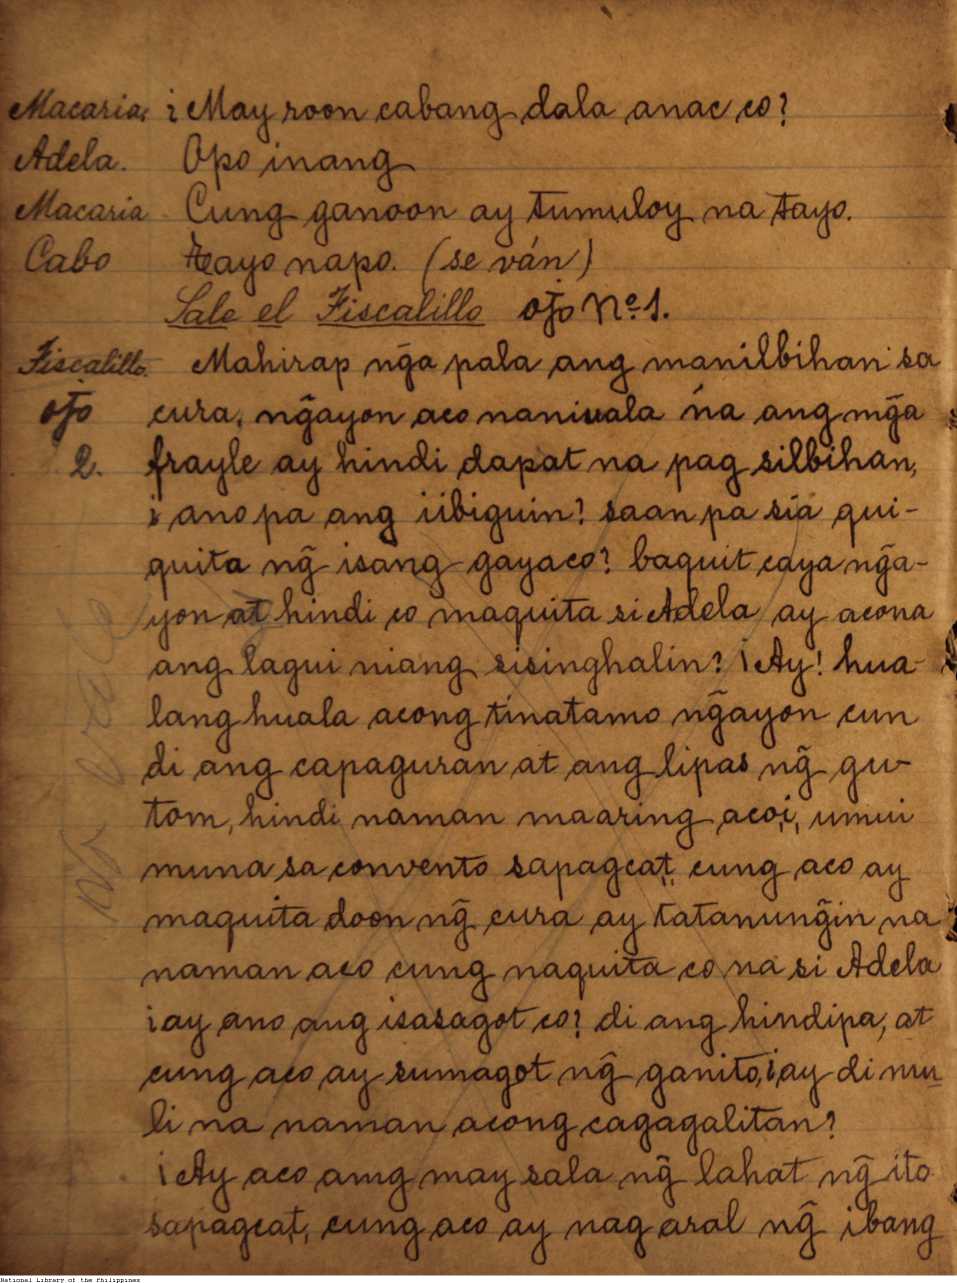 Macaria, ¿May roon cabang dala anac co?
Adela. Opo inang
Macaria Cung ganoon ay tumuloy na tayo.
Cabo tayo napo. (se ván)
Sale el Fiscalillo ojo Nº 1.
Fiscalillo. Mahirap ng̃a pala ang manilbihan sa
ojo cura, ng̃ayon aco naniuala na ang mg̃a
2. frayle ay hindi dapat na pag silbihan,
¿ano pa ang iibiguin? saan pa sia qui-
quita ng̃ isang gayaco? baquit caya ng̃a-
yon at hindi co maquita si Adela ay acona
ang lagui niang sisinghalin? ¡Ay! hua-
lang huala acong tinatamo ng̃ayon cun
di ang capaguran at ang lipas ng̃ gu-
tom, hindi naman maaring acoi, umui
muna sa convento sapagcat, cung aco ay
maquita doon ng̃ cura ay tatanung̃in na
naman aco cung naquita co na si Adela
¿ay ano ang isasagot co? di ang hindipa, at
cung aco ay sumagot ng̃ ganito, ¿ay di mu-
li na naman acong cagagalitan?
¡Ay aco amg may sala ng̃ lahat ng̃ ito
sapagcat, cung aco ay nag aral ng̃ ibang
National Library of the Philippines